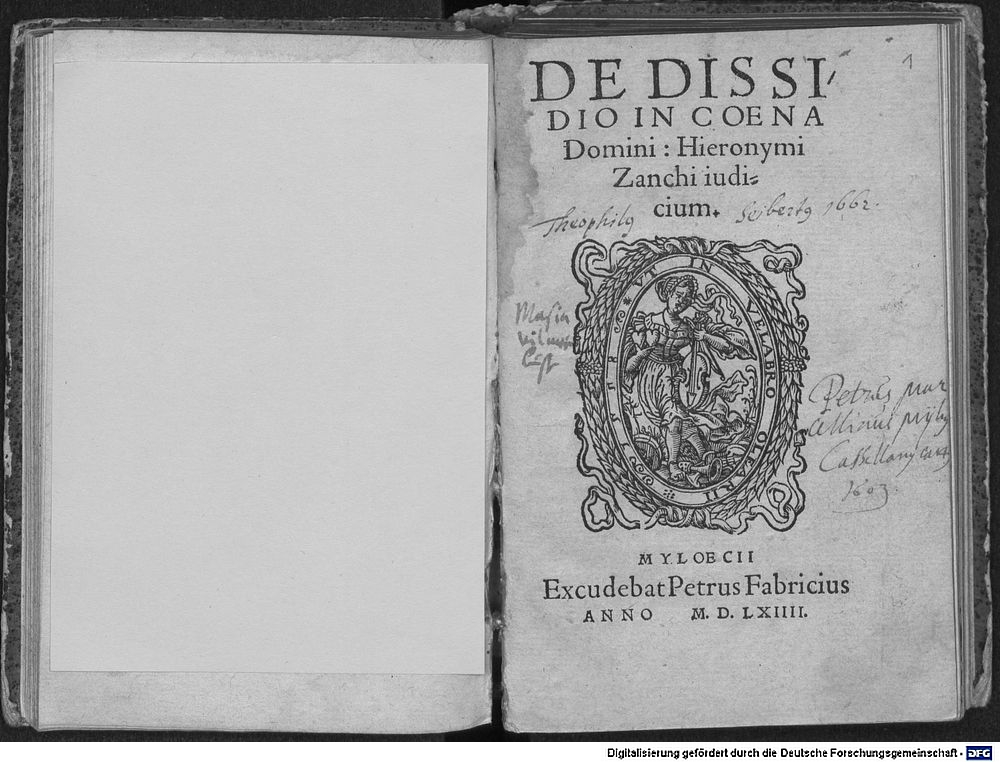 1
DE DISSI-
DIO IN COENA
Domini : Hieronymi
Zanchi iudi=
cium.
Theophilus Seibertus 1662.
UT IN VELABRO OLEARII
Petrus
1603
MYLOECII
Excudebat Petrus Fabricius
ANNO M. D. LXIIII.
Digitalisierung gefördert durch die Deutsche Forschungsgemeinschaft - DFG